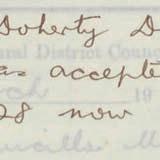 Doherty D
ural District Counc
as accepte
rch 19
28 now